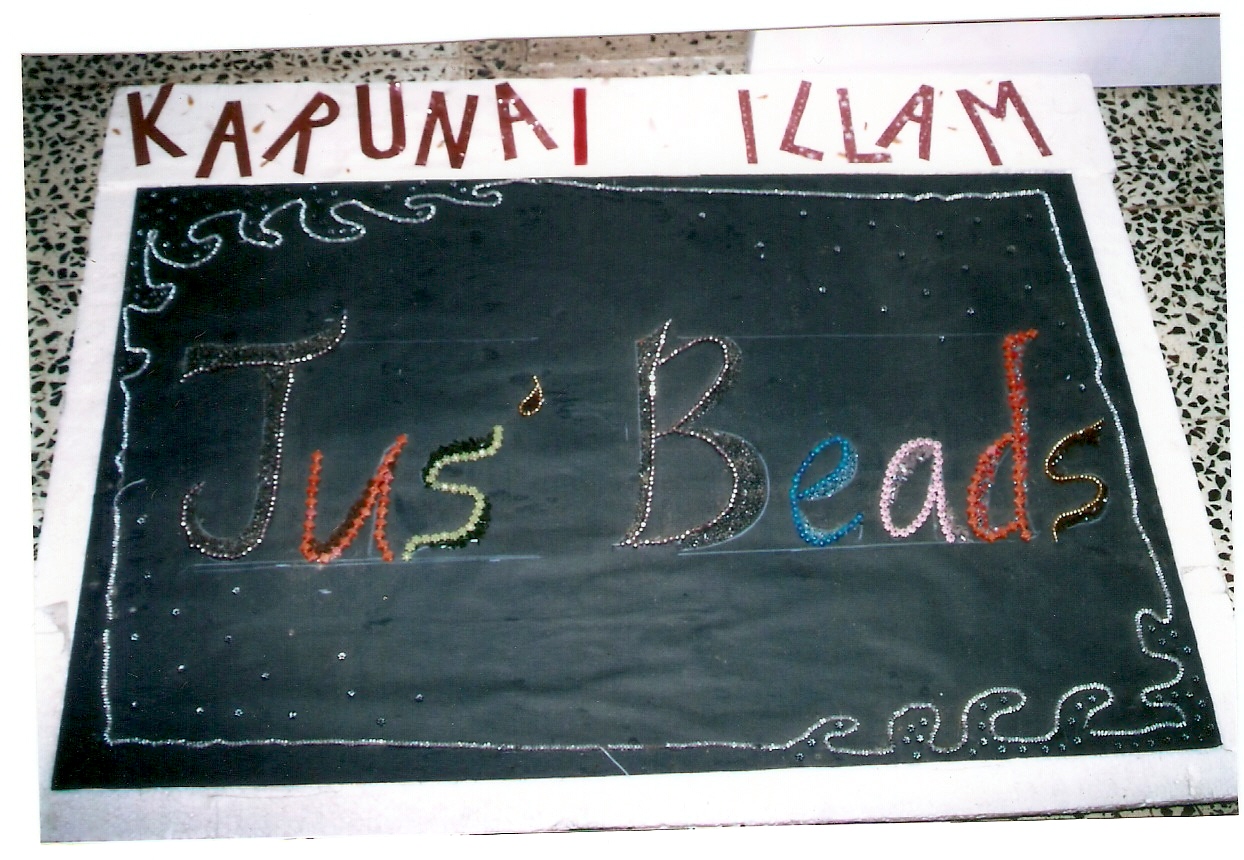 KARUNAI ILLAM
Jus' Beads